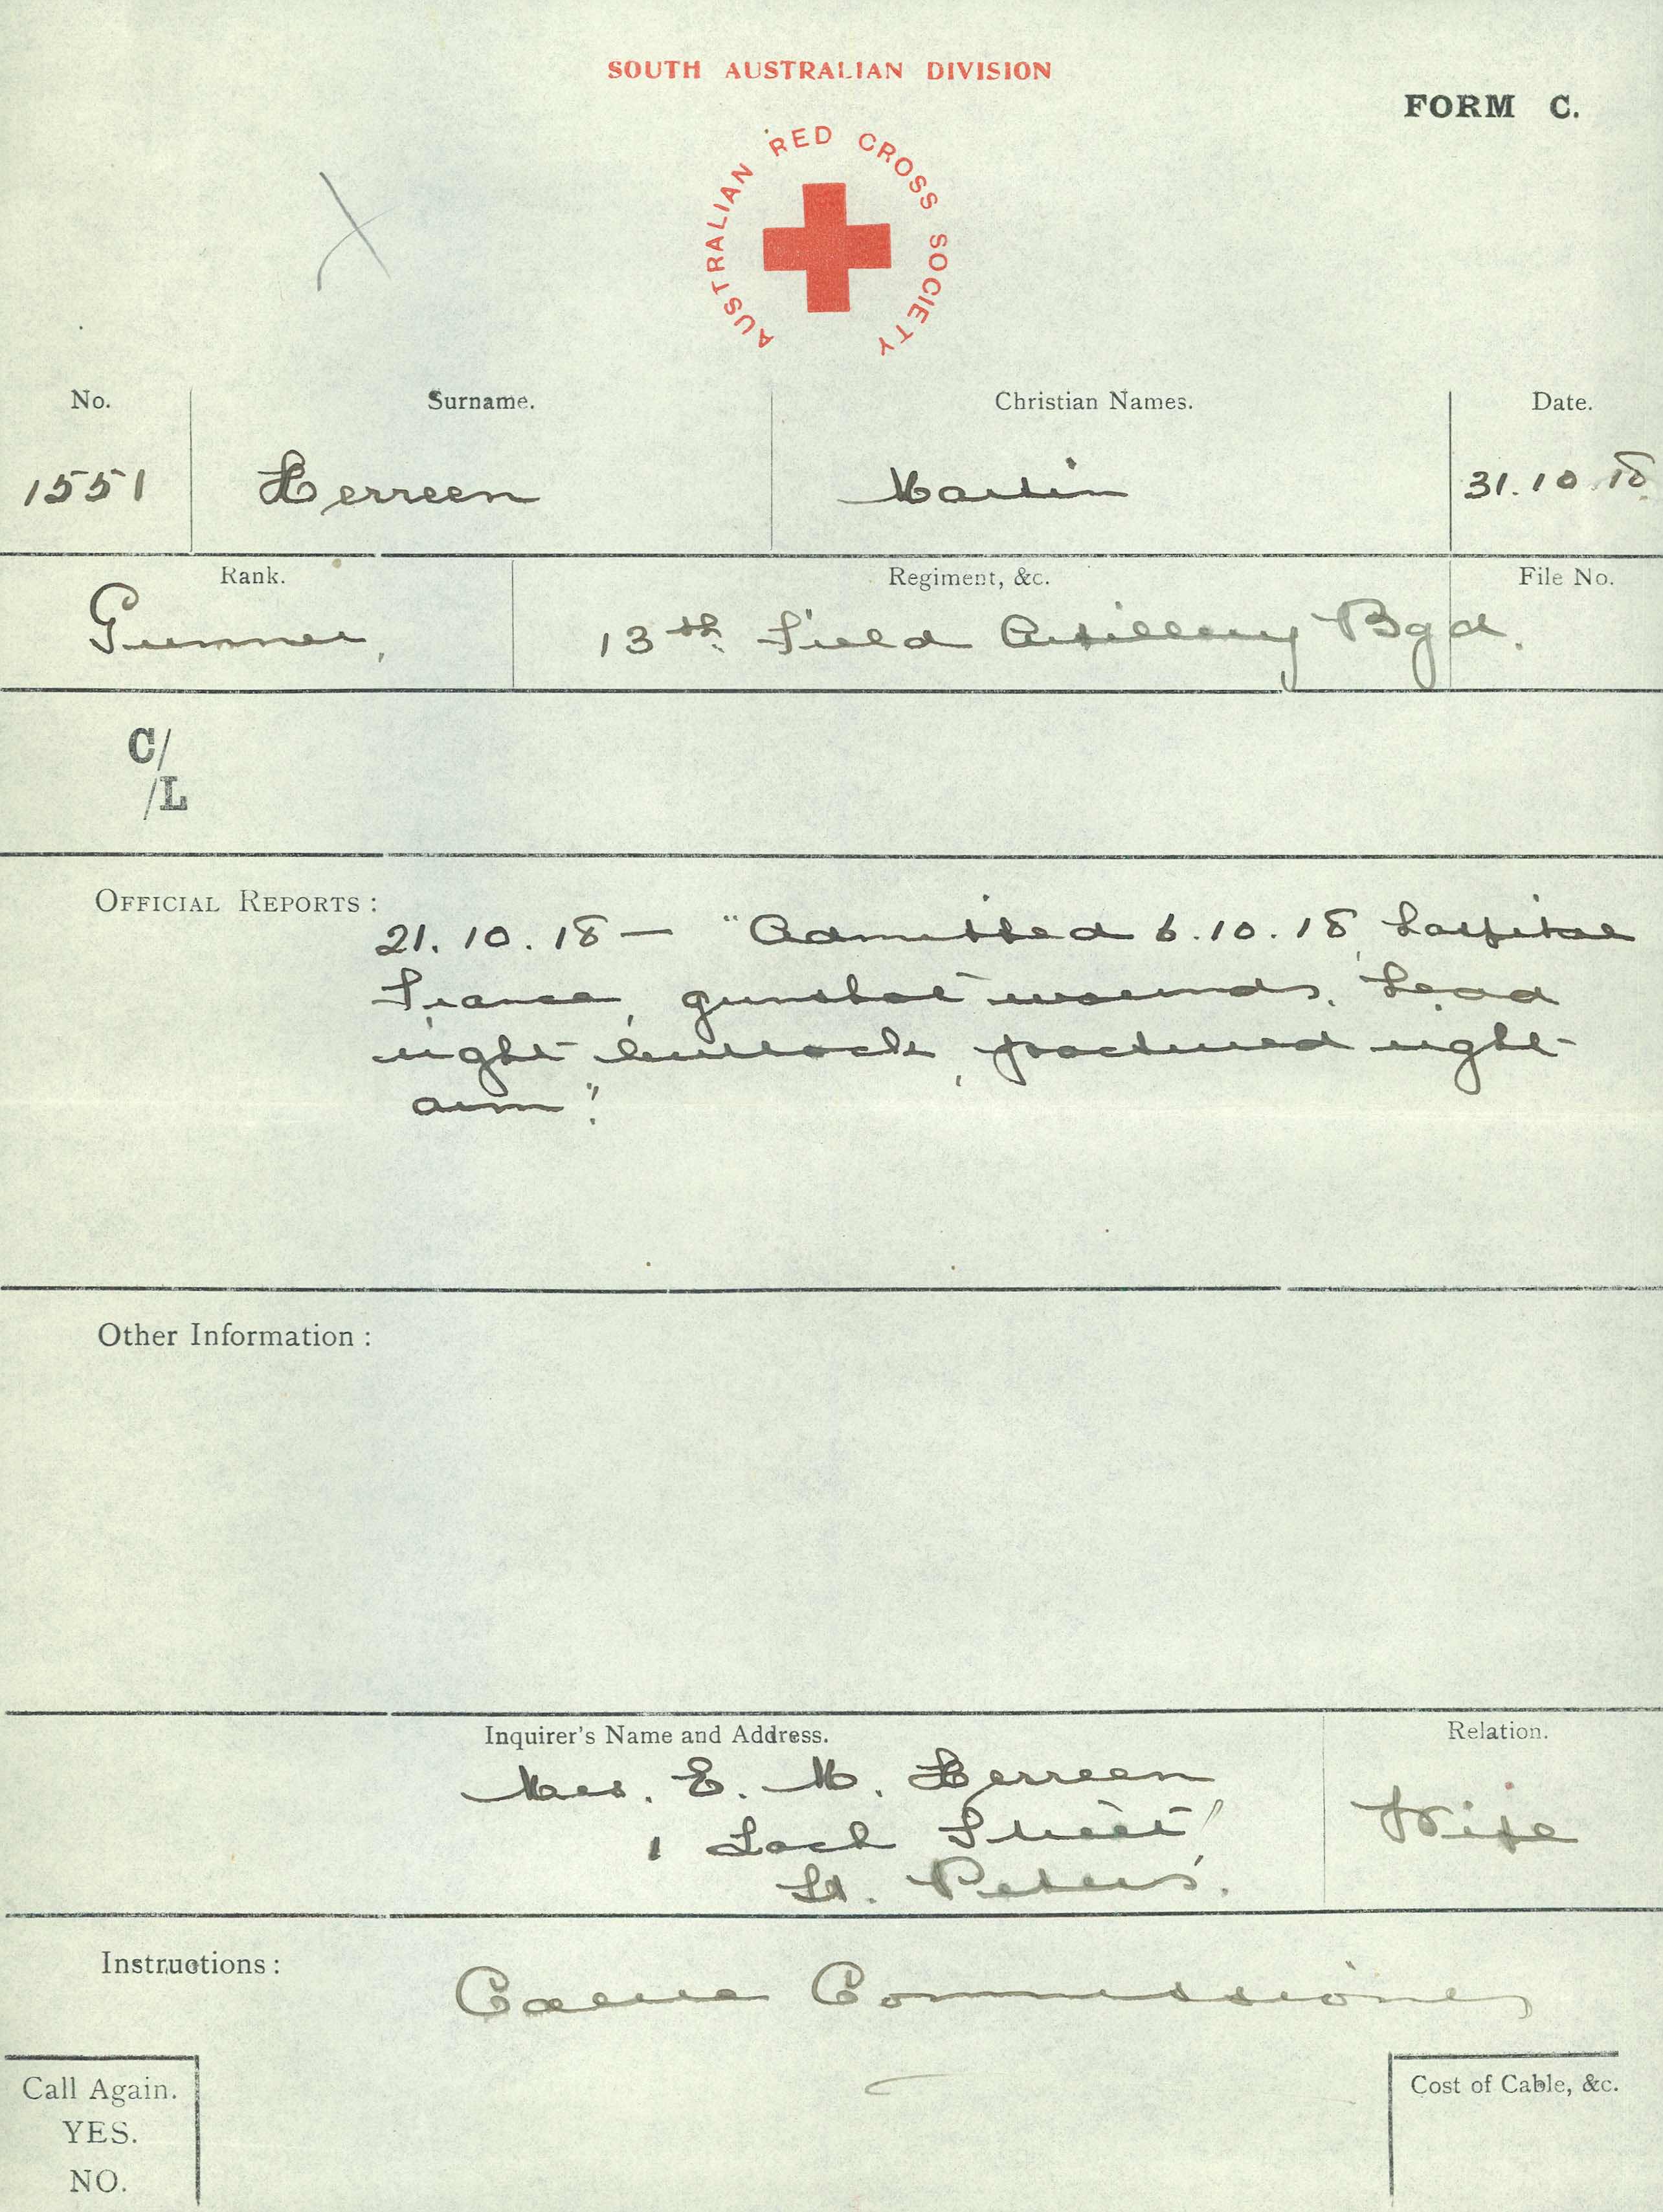 SOUTH AUSTRALIAN DIVISION
FORM C.
AUSTRALIAN RED CROSS SOCIETY
No. Surname. Christian Names. Date.
1551 Herreen Martin 31.10.18.
Rank. Regiment, &c. File No.
Gunner, 13th Field Artillery Bgd.
C/
/L
OFFICIAL REPORTS :
21.10.18 — "Admitted 6.10.18, hospital
France, gunshot wounds, head
right buttock, fractured right
arm".
Other Information :
Inquirer's Name and Address. Relation.
Mrs. E. M. Herreen
1 Loch Street,
St. Peters. Wife
Instructions :
Cable Commissioner
Call Again. Cost of Cable, &c.
YES.
NO.